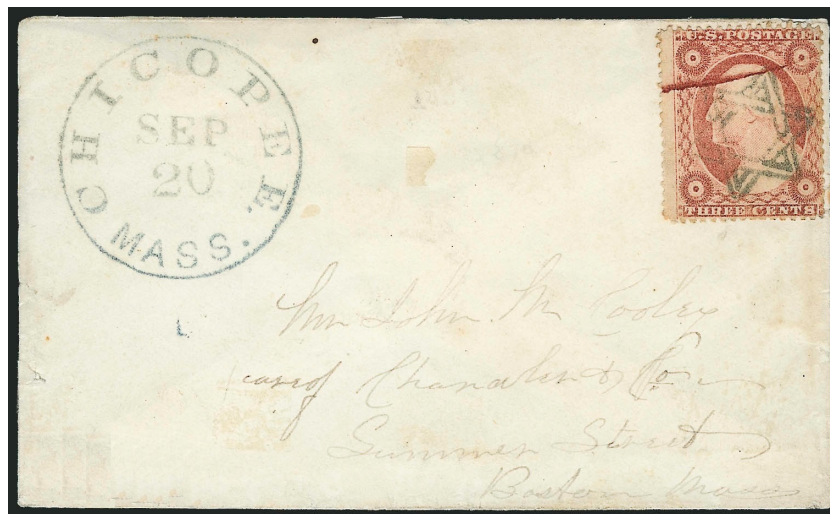 CHICOPEE.
SEP
20
MASS.
U.S. POSTAGE
THREE CENTS
Mr John M Cooley
care of Chandler & Co
Summer Street
Boston Mass